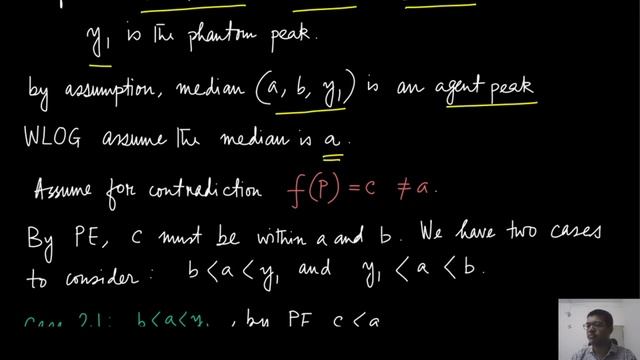 y₁ is the phantom peak.
by assumption, median (a, b, y₁) is an agent peak
WLOG assume the median is a.
Assume for contradiction f(P) = c ≠ a.
By PE, c must be within a and b. We have two cases
to consider: b < a < y₁ and y₁ < a < b.
Case 2.1: b < a < y₁, by PE c < a